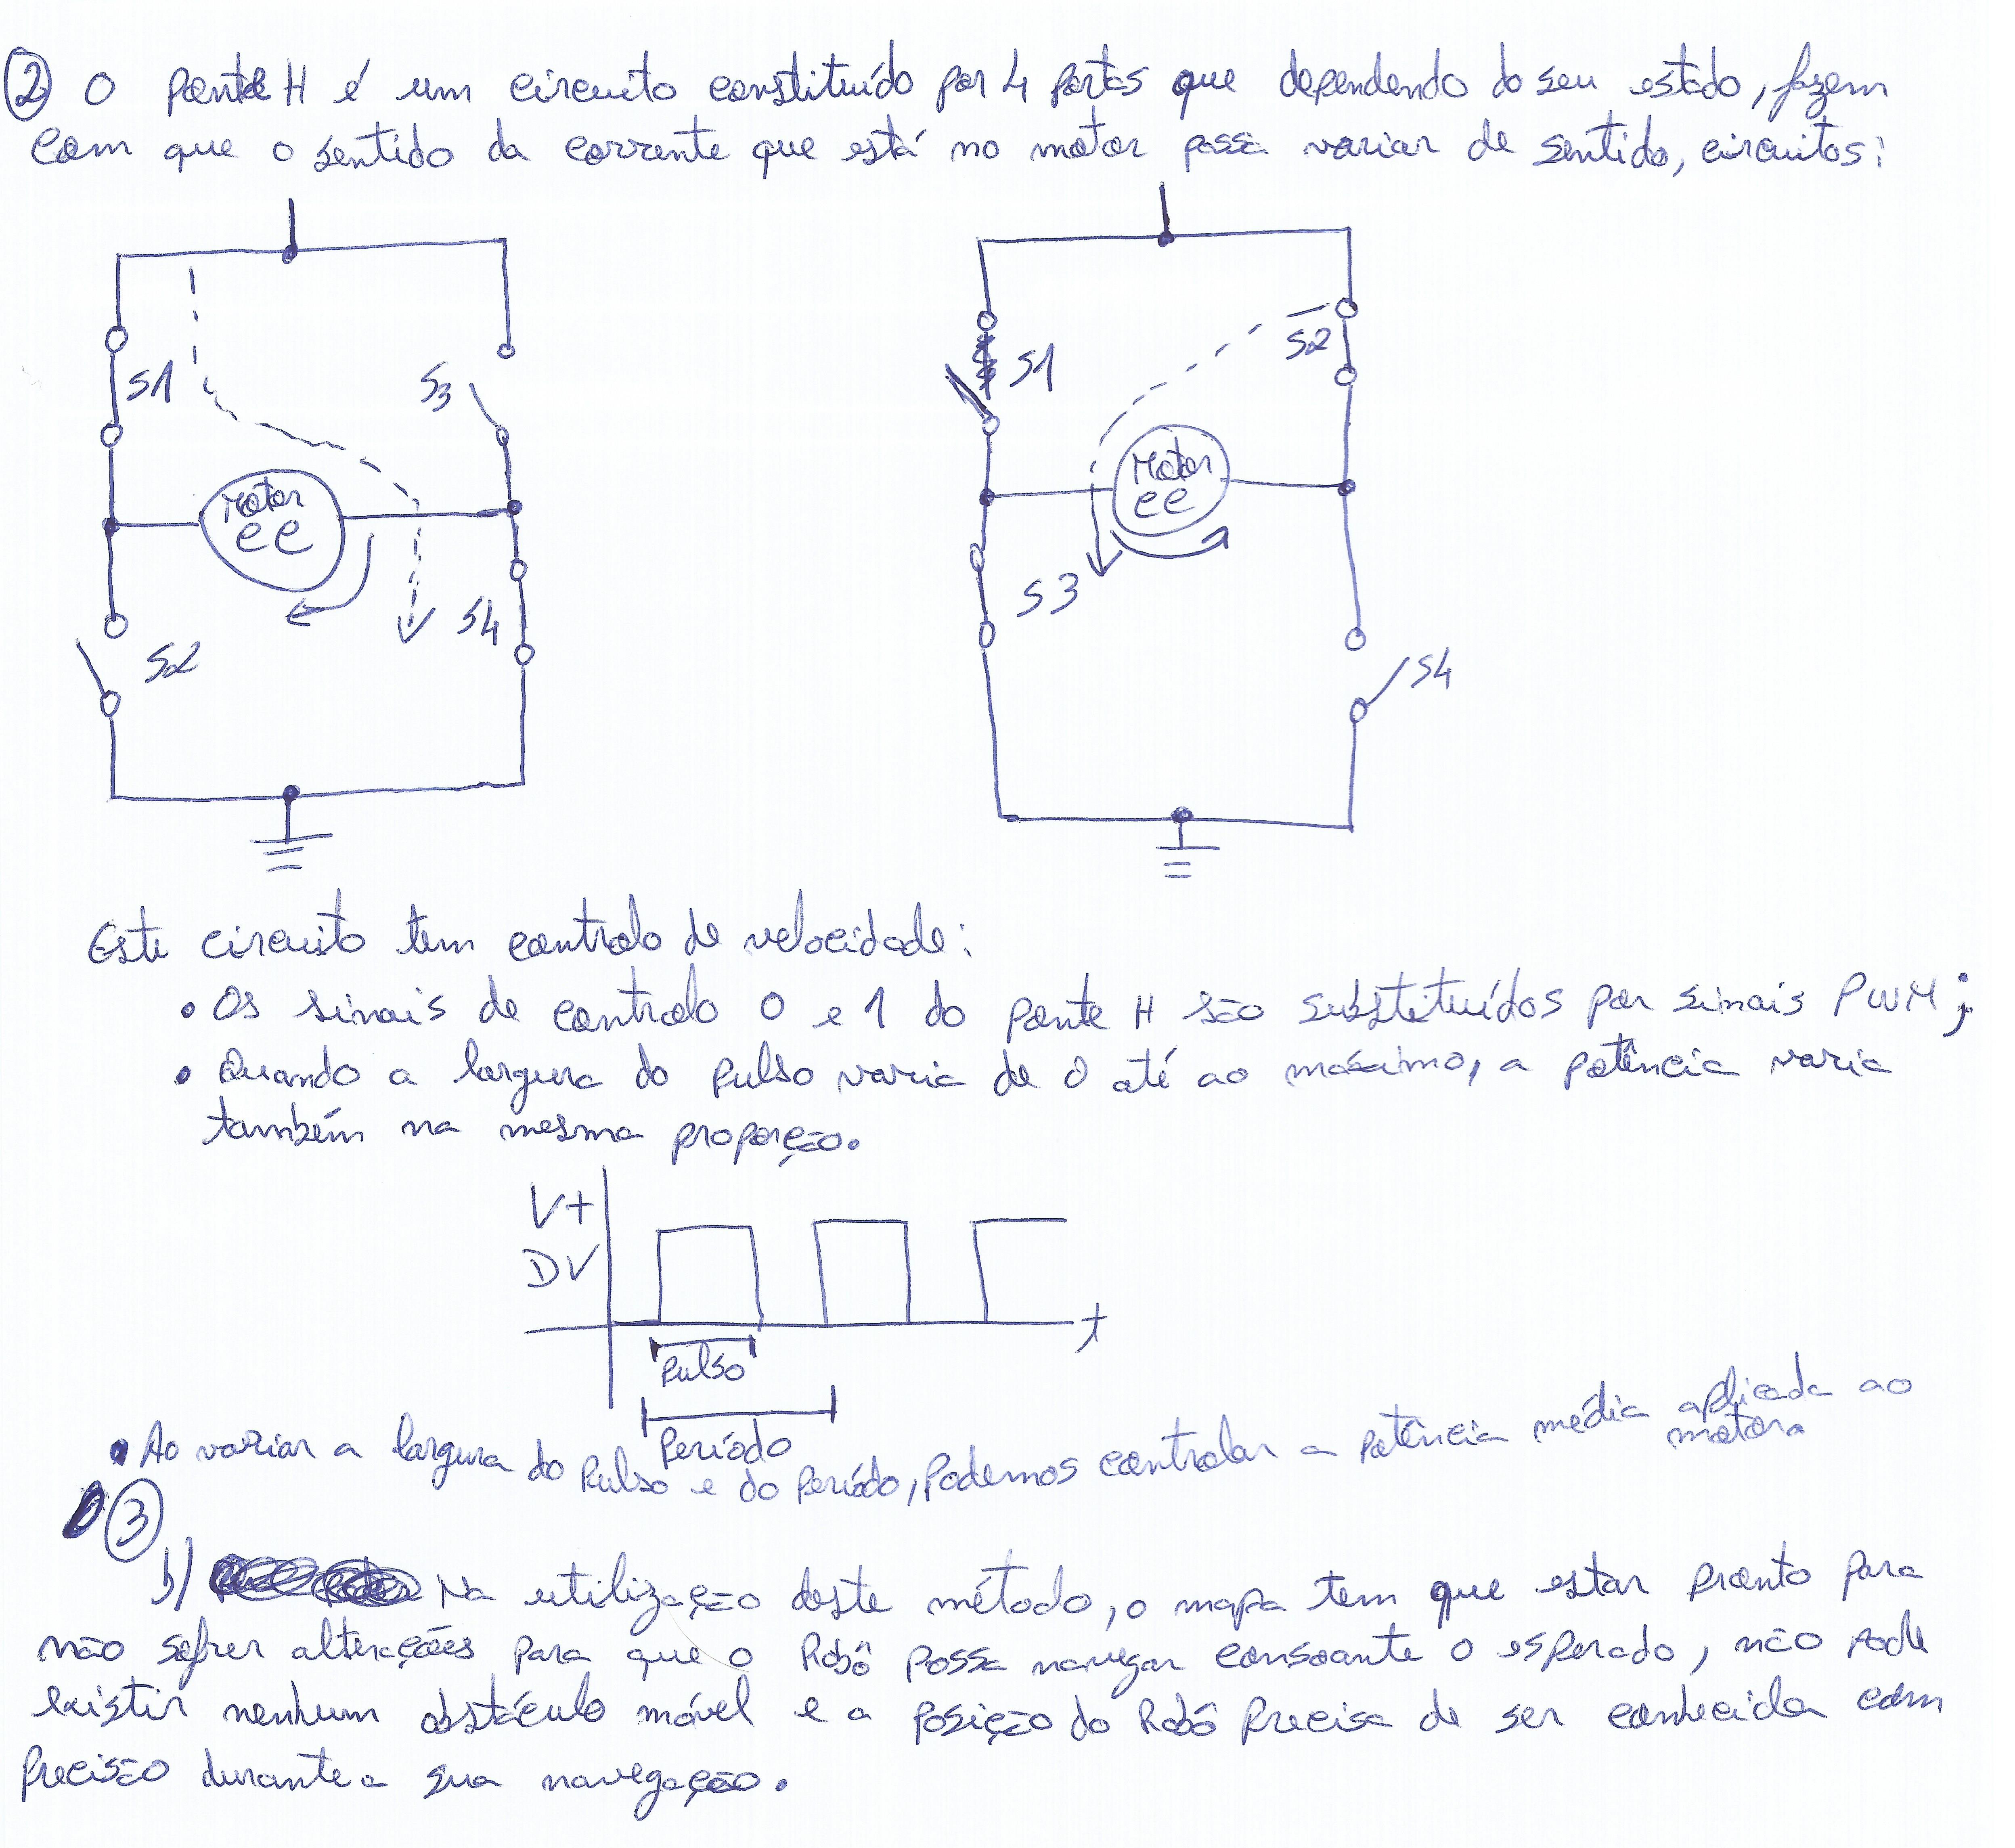 2 O ponte H é um circuito constituído por 4 portas que dependendo do seu estado, fazem
com que o sentido da corrente que está no motor possa variar de sentido, circuitos:
S1 S3 S1 S2
Motor Motor
CC CC
S2 S4 S3 S4
Este circuito tem controlo de velocidade:
• Os sinais de controlo 0 e 1 do ponte H são substituídos por sinais PWM;
• Quando a largura do pulso varia de 0 até ao máximo, a potência varia
também na mesma proporção.
V+
DV
t
Pulso
Período
• Ao variar a largura do pulso e do período, podemos controlar a potência média aplicada ao
motor.
3
b) Na utilização deste método, o mapa tem que estar pronto para
não sofrer alterações para que o Robô possa navegar consoante o esperado, não pode
existir nenhum obstáculo móvel e a posição do Robô precisa de ser conhecida com
precisão durante a sua navegação.